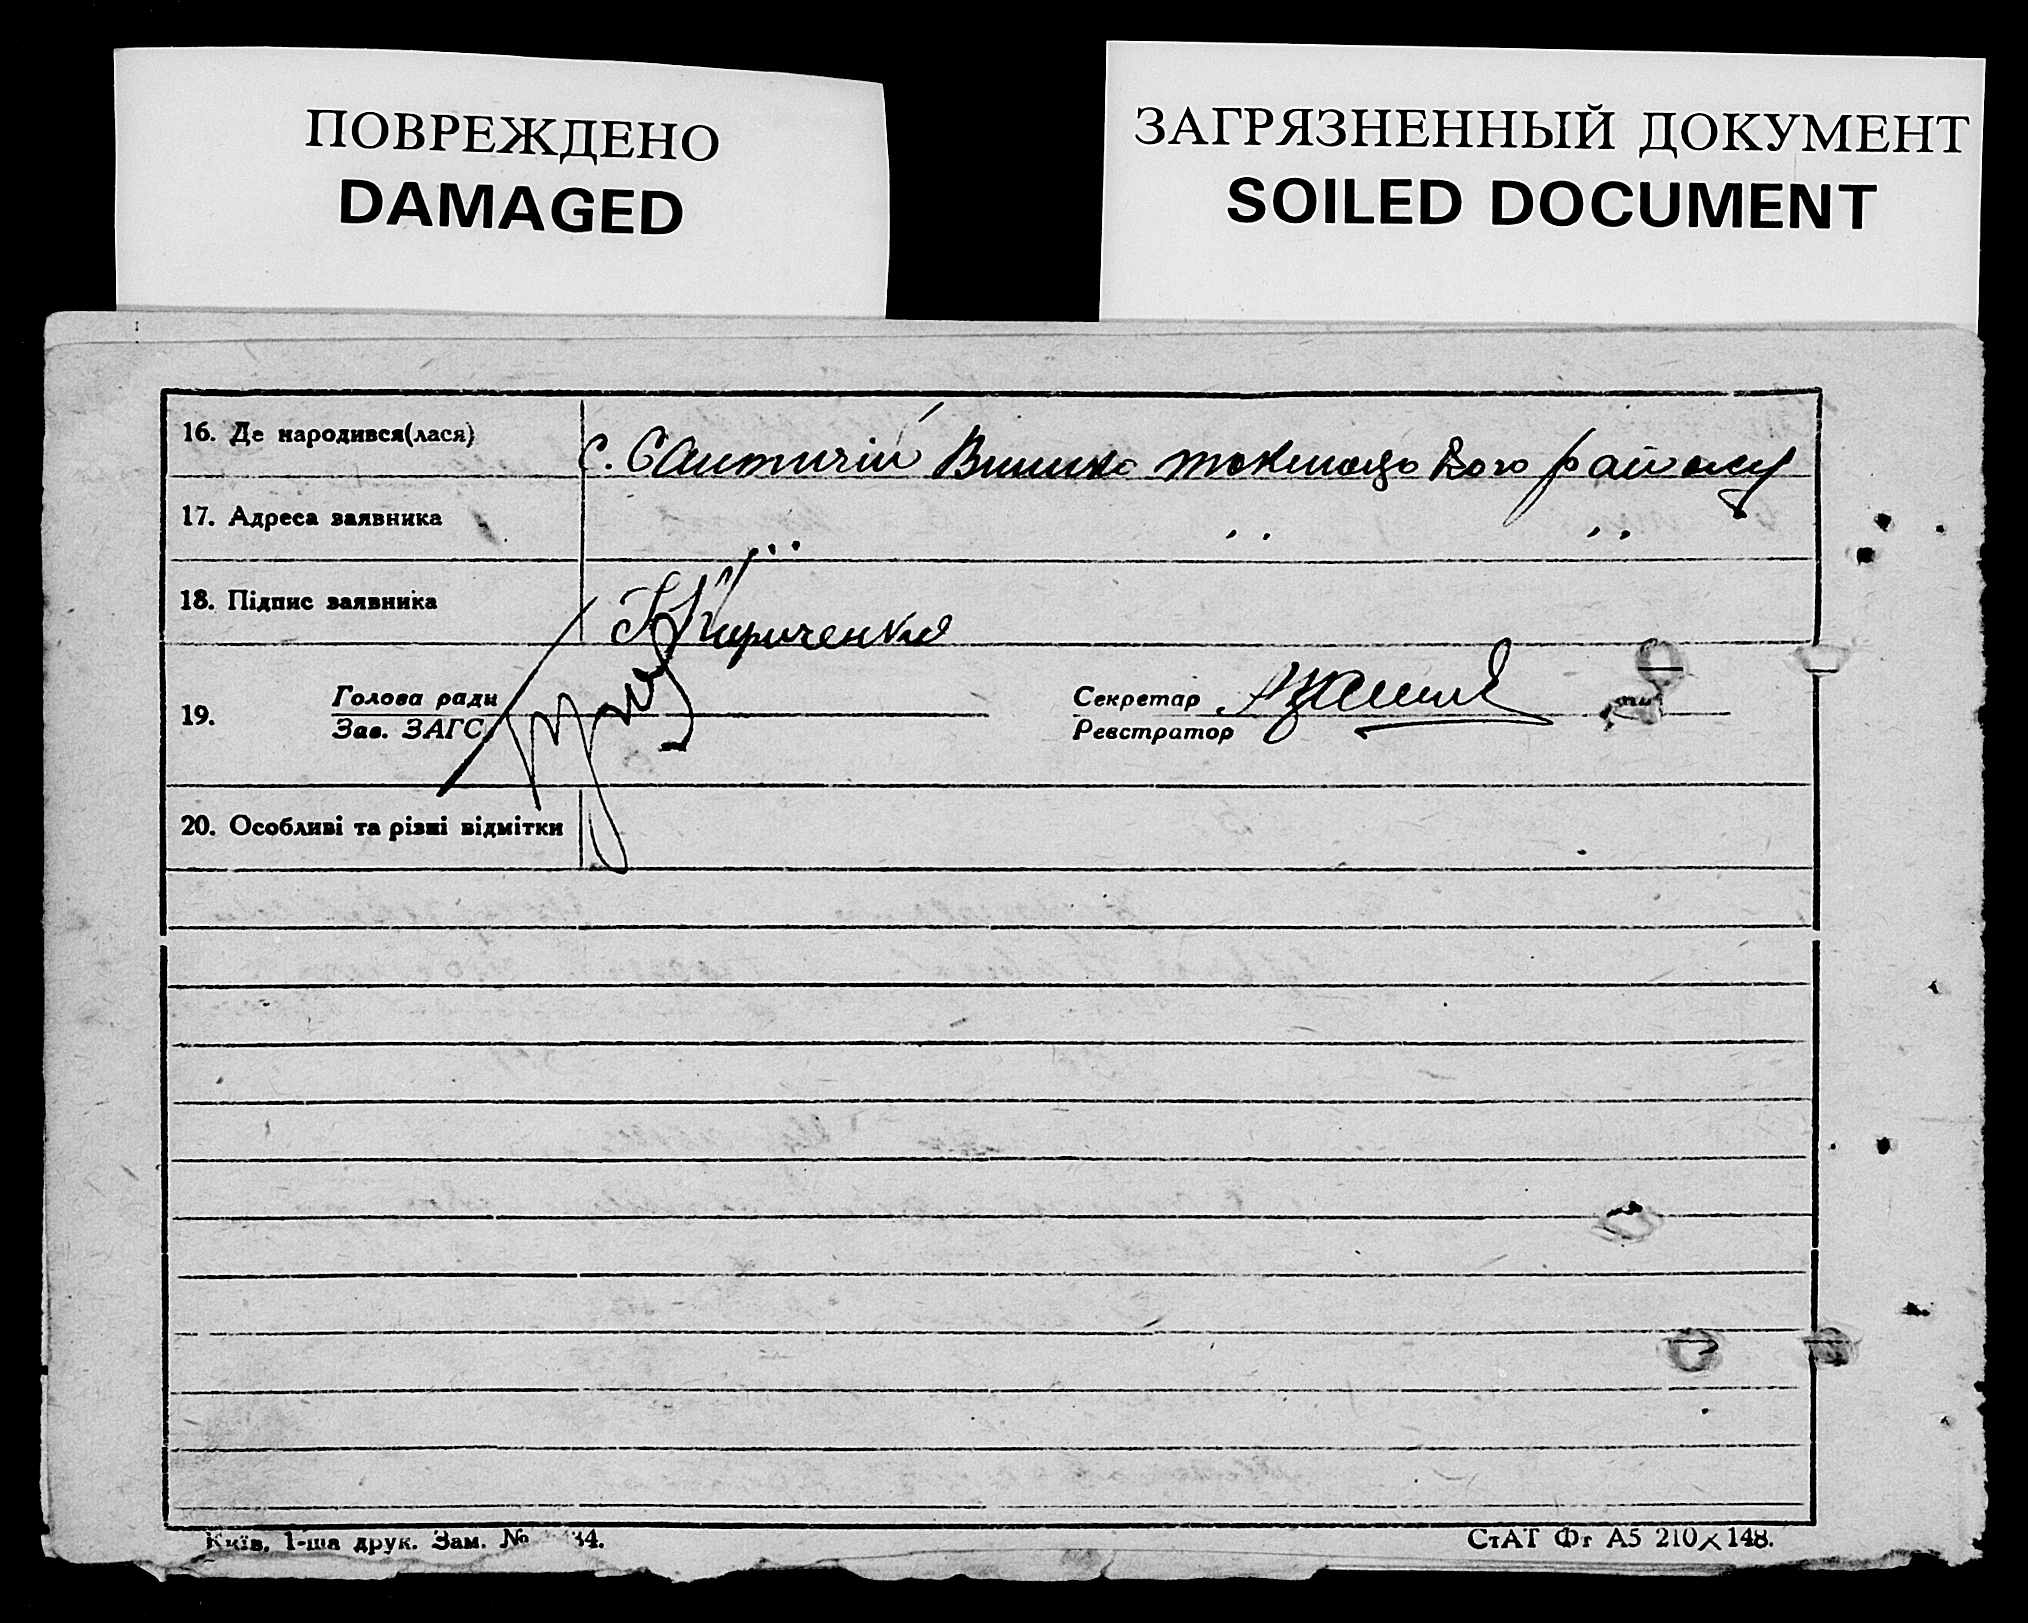 ПОВРЕЖДЕНО
DAMAGED
ЗАГРЯЗНЕННЫЙ ДОКУМЕНТ
SOILED DOCUMENT
16. Де народився(лася)
с. району
17. Адреса заявника
18. Підпис заявника
Кириченко
19. Голова ради
Зав. ЗАГС
Секретар
Реєстратор
20. Особливі та різні відмітки
Київ, 1-ша друк. Зам. №
СтАТ Фг А5 210×148.